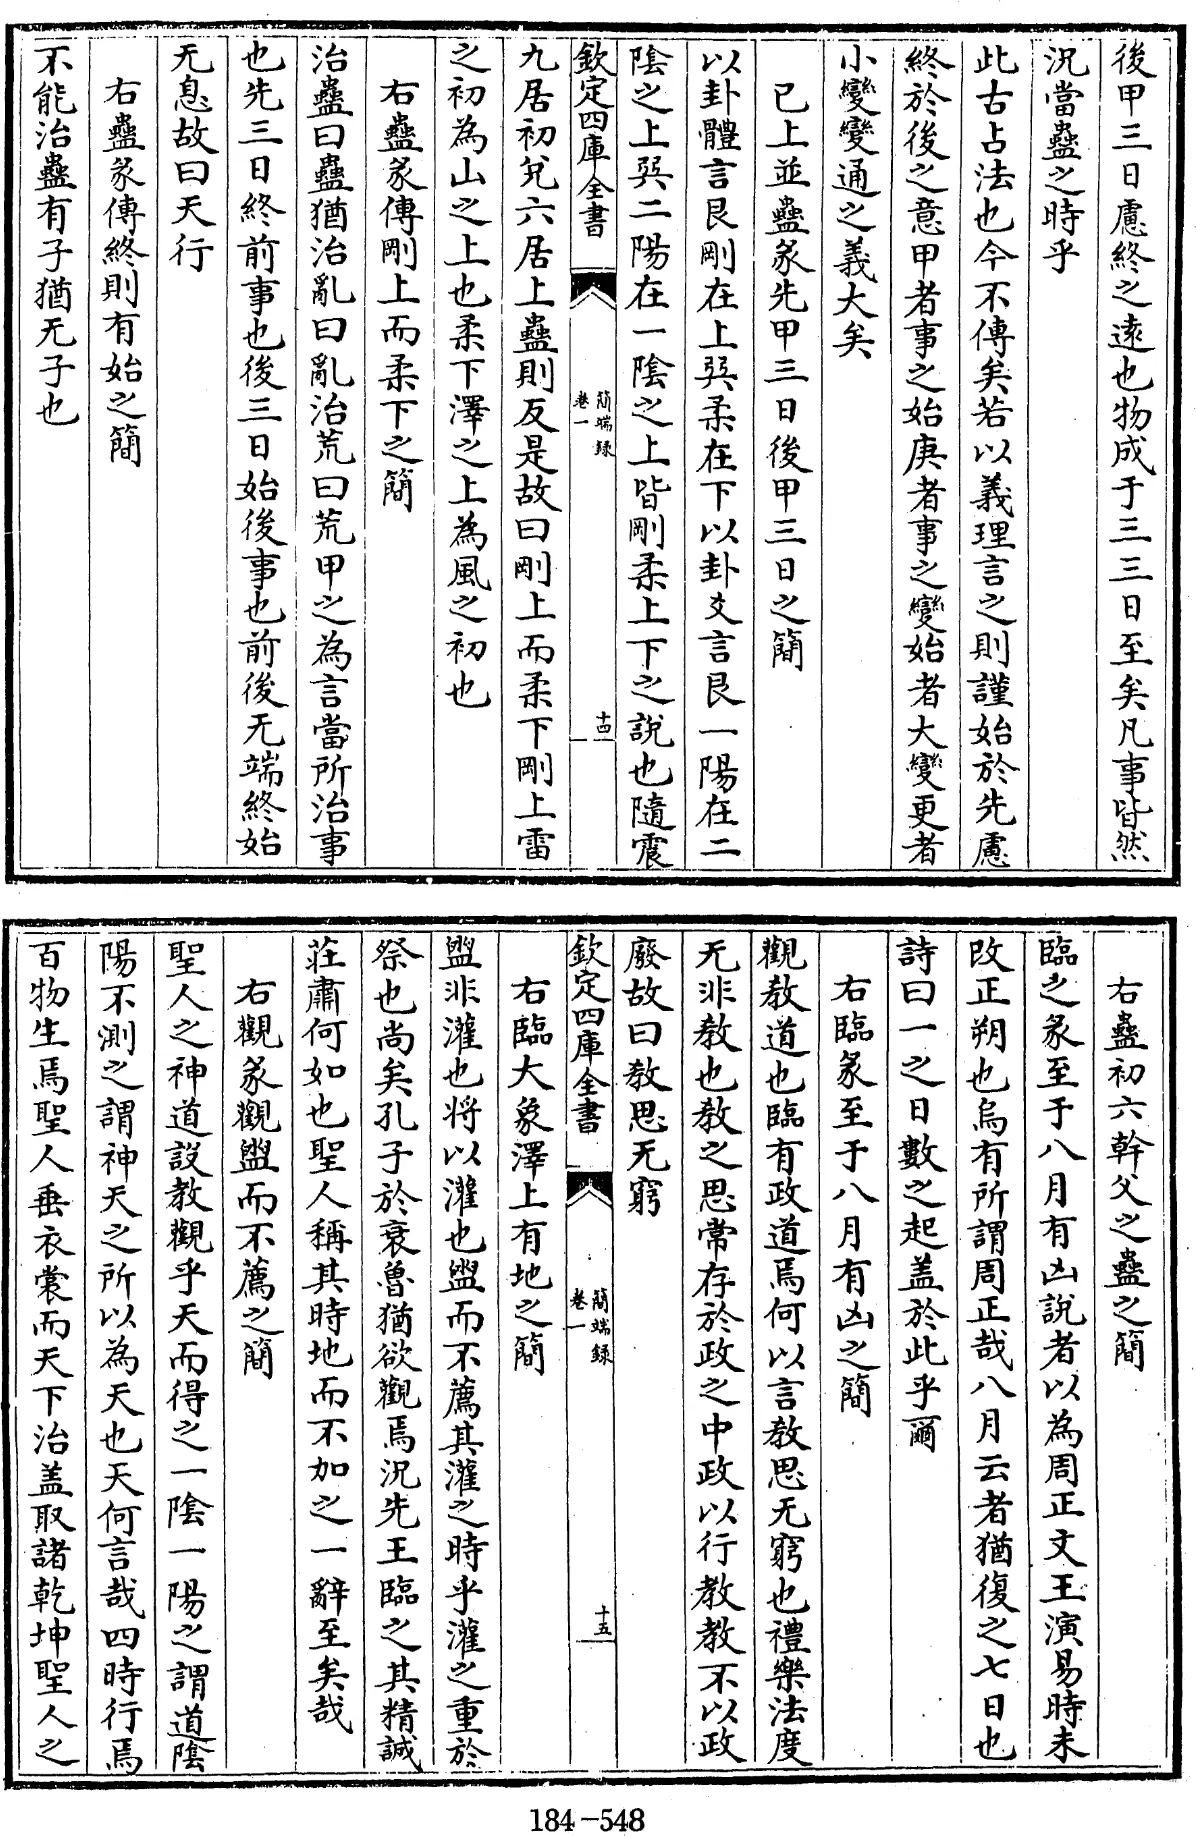 後甲三日慮終之遠也物成于三三日至矣凡事皆然
況當蠱之時乎
此古占法也今不傳矣若以義理言之則謹始於先慮
終於後之意甲者事之始庚者事之變始者大變更者
小變變通之義大矣
已上並蠱彖先甲三日後甲三日之簡
以卦體言艮剛在上巽柔在下以卦爻言艮一陽在二
陰之上巽二陽在一陰之上皆剛柔上下之說也隨震
欽定四庫全書
簡端録
卷一
十四
九居初兌六居上蠱則反是故曰剛上而柔下剛上雷
之初為山之上也柔下澤之上為風之初也
右蠱彖傳剛上而柔下之簡
治蠱曰蠱猶治亂曰亂治荒曰荒甲之為言當所治事
也先三日終前事也後三日始後事也前後无端終始
无息故曰天行
右蠱彖傳終則有始之簡
不能治蠱有子猶无子也
右蠱初六幹父之蠱之簡
臨之彖至于八月有凶說者以為周正文王演易時未
改正朔也烏有所謂周正哉八月云者猶復之七日也
詩曰一之日數之起盖於此乎爾
右臨彖至于八月有凶之簡
觀教道也臨有政道焉何以言教思无窮也禮樂法度
无非教也教之思常存於政之中政以行教教不以政
廢故曰教思无窮
欽定四庫全書
簡端録
卷一
十五
右臨大象澤上有地之簡
盥非灌也將以灌也盥而不薦其灌之時乎灌之重於
祭也尚矣孔子於衰魯猶欲觀焉況先王臨之其精誠
莊肅何如也聖人稱其時地而不加之一辭至矣哉
右觀彖觀盥而不薦之簡
聖人之神道設教觀乎天而得之一陰一陽之謂道陰
陽不測之謂神天之所以為天也天何言哉四時行焉
百物生焉聖人垂衣裳而天下治盖取諸乾坤聖人之
184-548